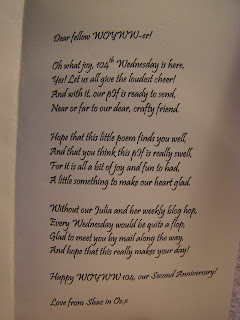 Dear fellow WOYWW-er!
Oh what joy, 104th Wednesday is here,
Yes! Let us all give the loudest cheer!
And with it, our pIf is ready to send,
Near or far to our dear, crafty friend.
Hope that this little poem finds you well,
And that you think this pIf is really swell,
For it is all a bit of joy and fun to had,
A little something to make our heart glad.
Without our Julia and her weekly blog hop,
Every Wednesday would be quite a flop,
Glad to meet you by mail along the way,
And hope that this really makes your day!
Happy WOYWW 104, our Second Anniversary!
Love from Shaz in Oz.x